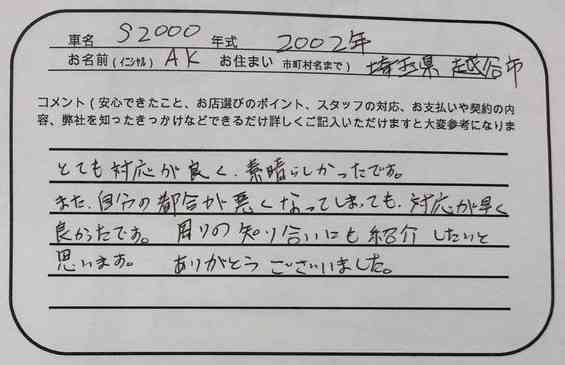 車名 S2000 年式 2002年
お名前(イニシャル) AK お住まい 市町村名まで) 埼玉県 越谷市
コメント(安心できたこと、お店選びのポイント、スタッフの対応、お支払いや契約の内
容、弊社を知ったきっかけなどできるだけ詳しくご記入いただけますと大変参考になりま
とても対応が良く、素晴らしかったです。
また、自分の都合が悪くなってしまっても、対応が早く
良かったです。 周りの知り合いにも紹介したいと
思います。 ありがとうございました。